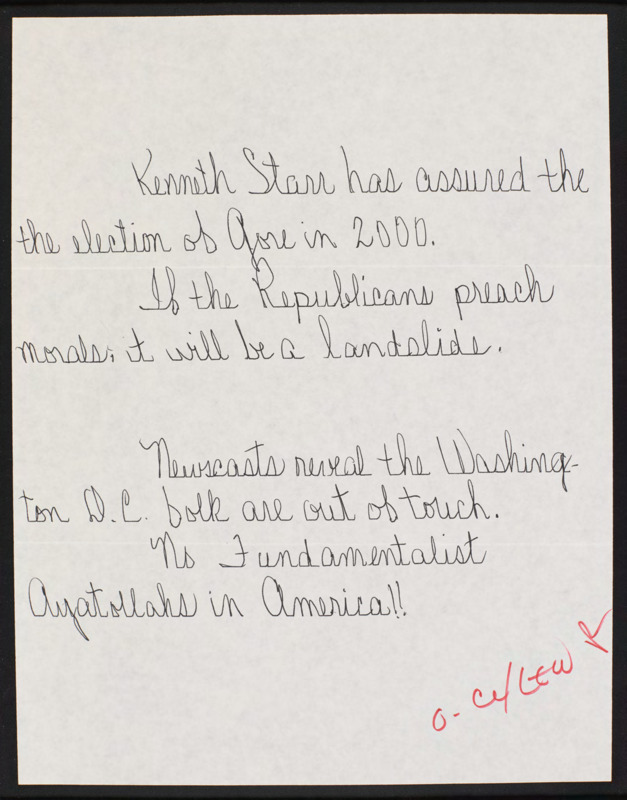 Kenneth Starr has assured the
the election of Gore in 2000.
If the Republicans preach
morals; it will be a landslide.
Newscasts reveal the Washing-
ton D.C. folk are out of touch.
No Fundamentalist
Ayatollahs in America!!